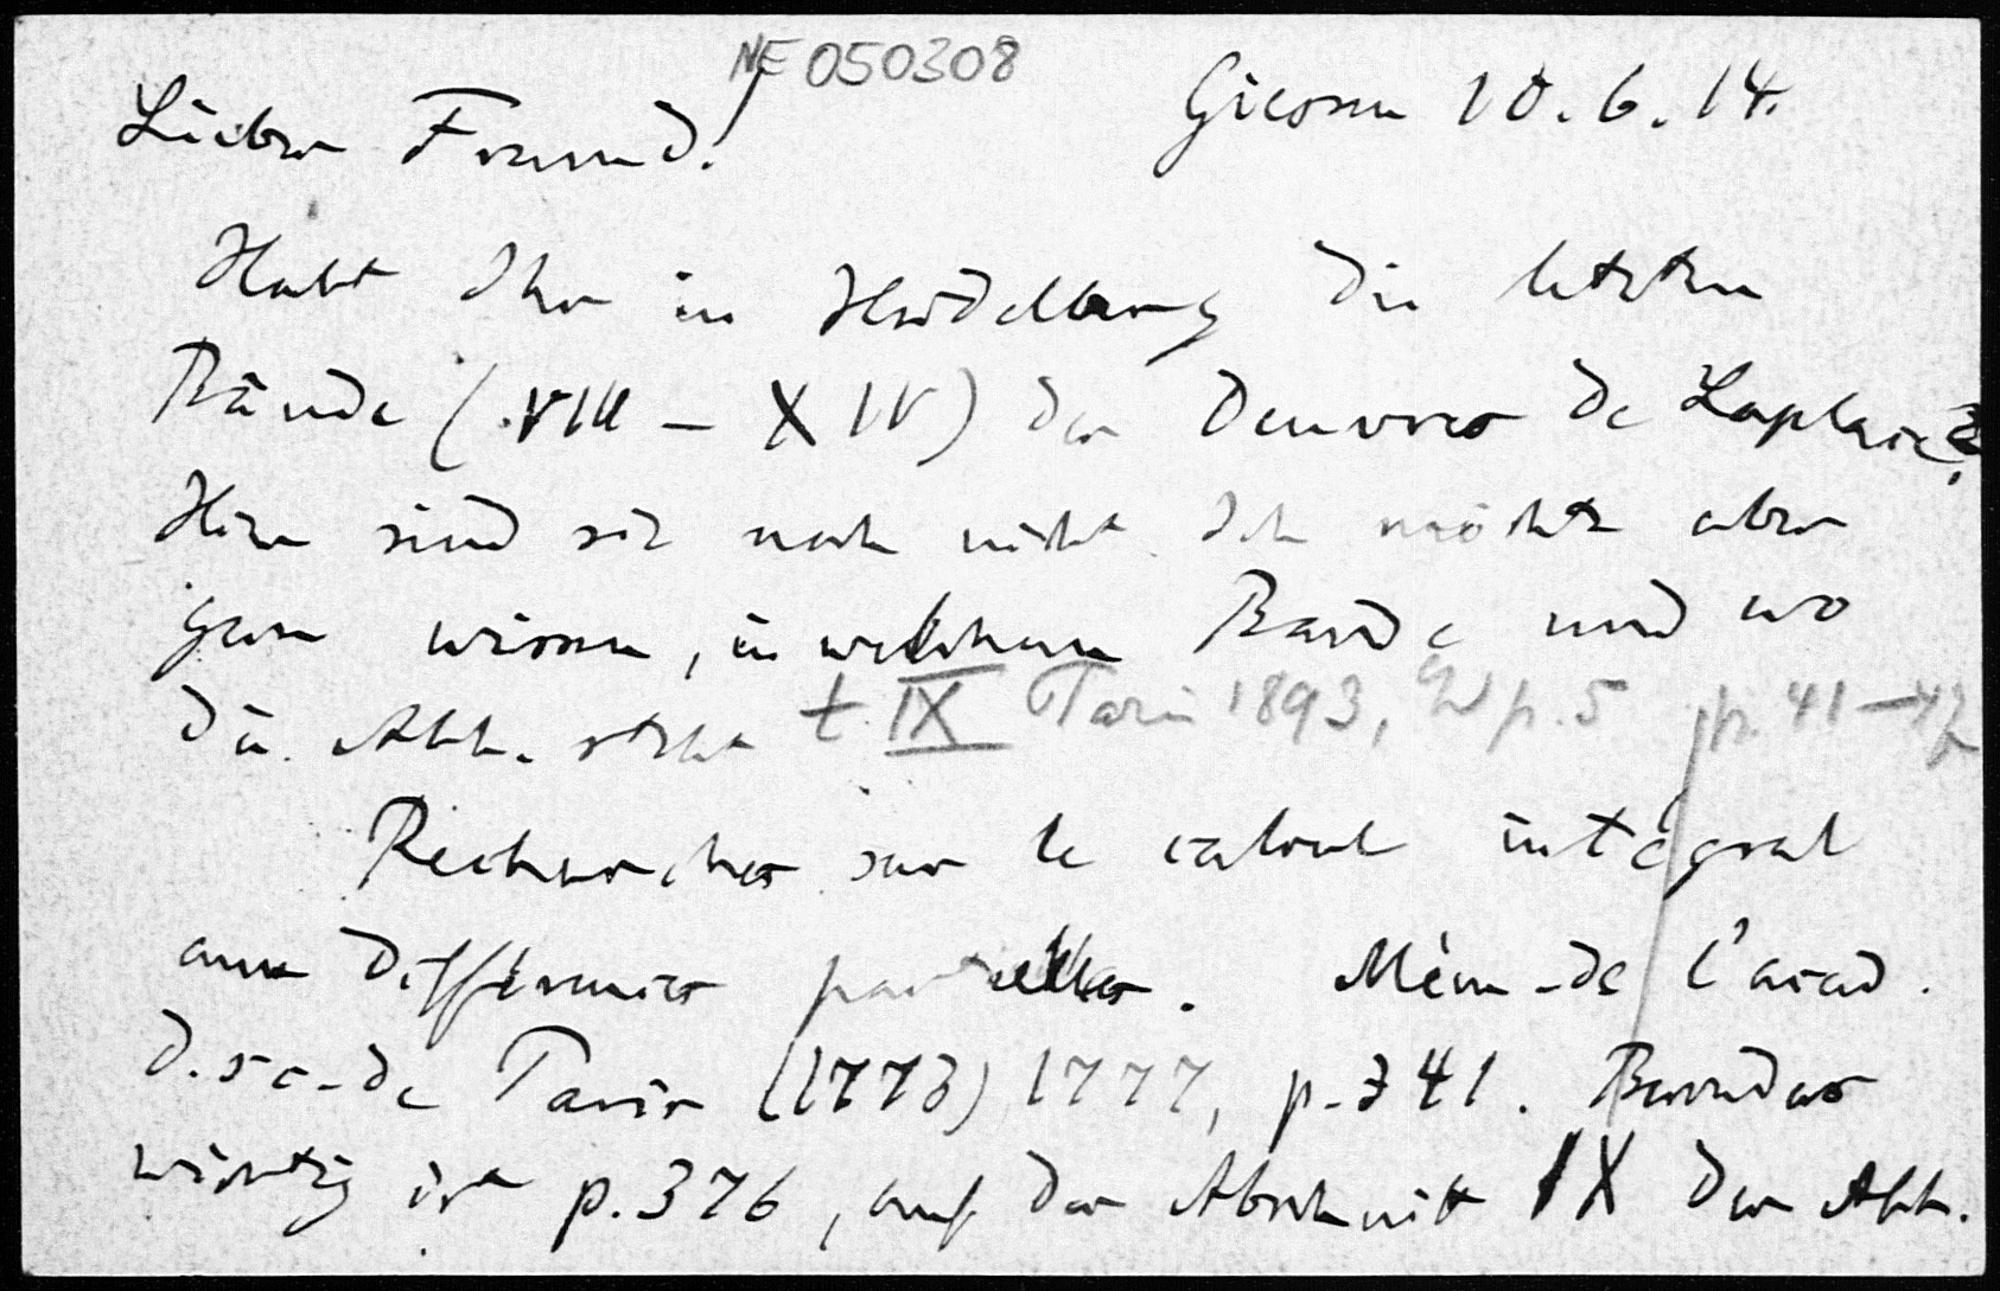 NE 050308
Giessen 10. 6. 14.
Lieber Freund!
Habt Ihr in Heidelberg die letzten
Bände (VIII – XIV) der Oeuvres de Laplace?
Hier sind sie noch nicht. Ich möchte aber
gern wissen, in welchem Bande und wo
die Abh. steht t. IX Paris 1893, p. 5 p. 41–42
Recherches sur le calcul intégral
aux différences partielles. Mém. de l'acad.
d. sc. de Paris (1773) 1777, p. 341. Besonders
wichtig ist p. 376, auf der Abschnitt IX der Abh.